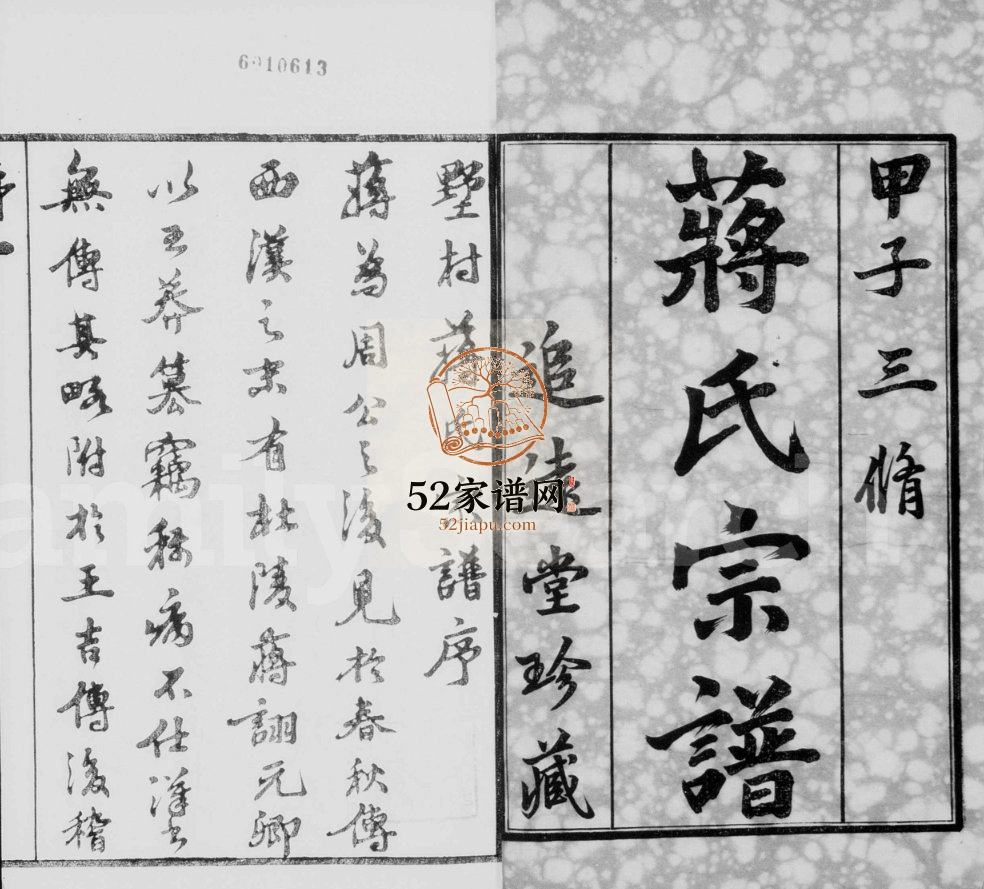 6910613
甲子三脩
蔣氏宗譜
追遠堂珍藏
墅村蔣氏宗譜序
蔣為周公之後見於春秋傳
西漢之末有杜陵蔣詡元卿
以王莽篡竊稱病不仕漢書
無傳其略附於王吉傳後稽
52家谱网
52jiapu.com